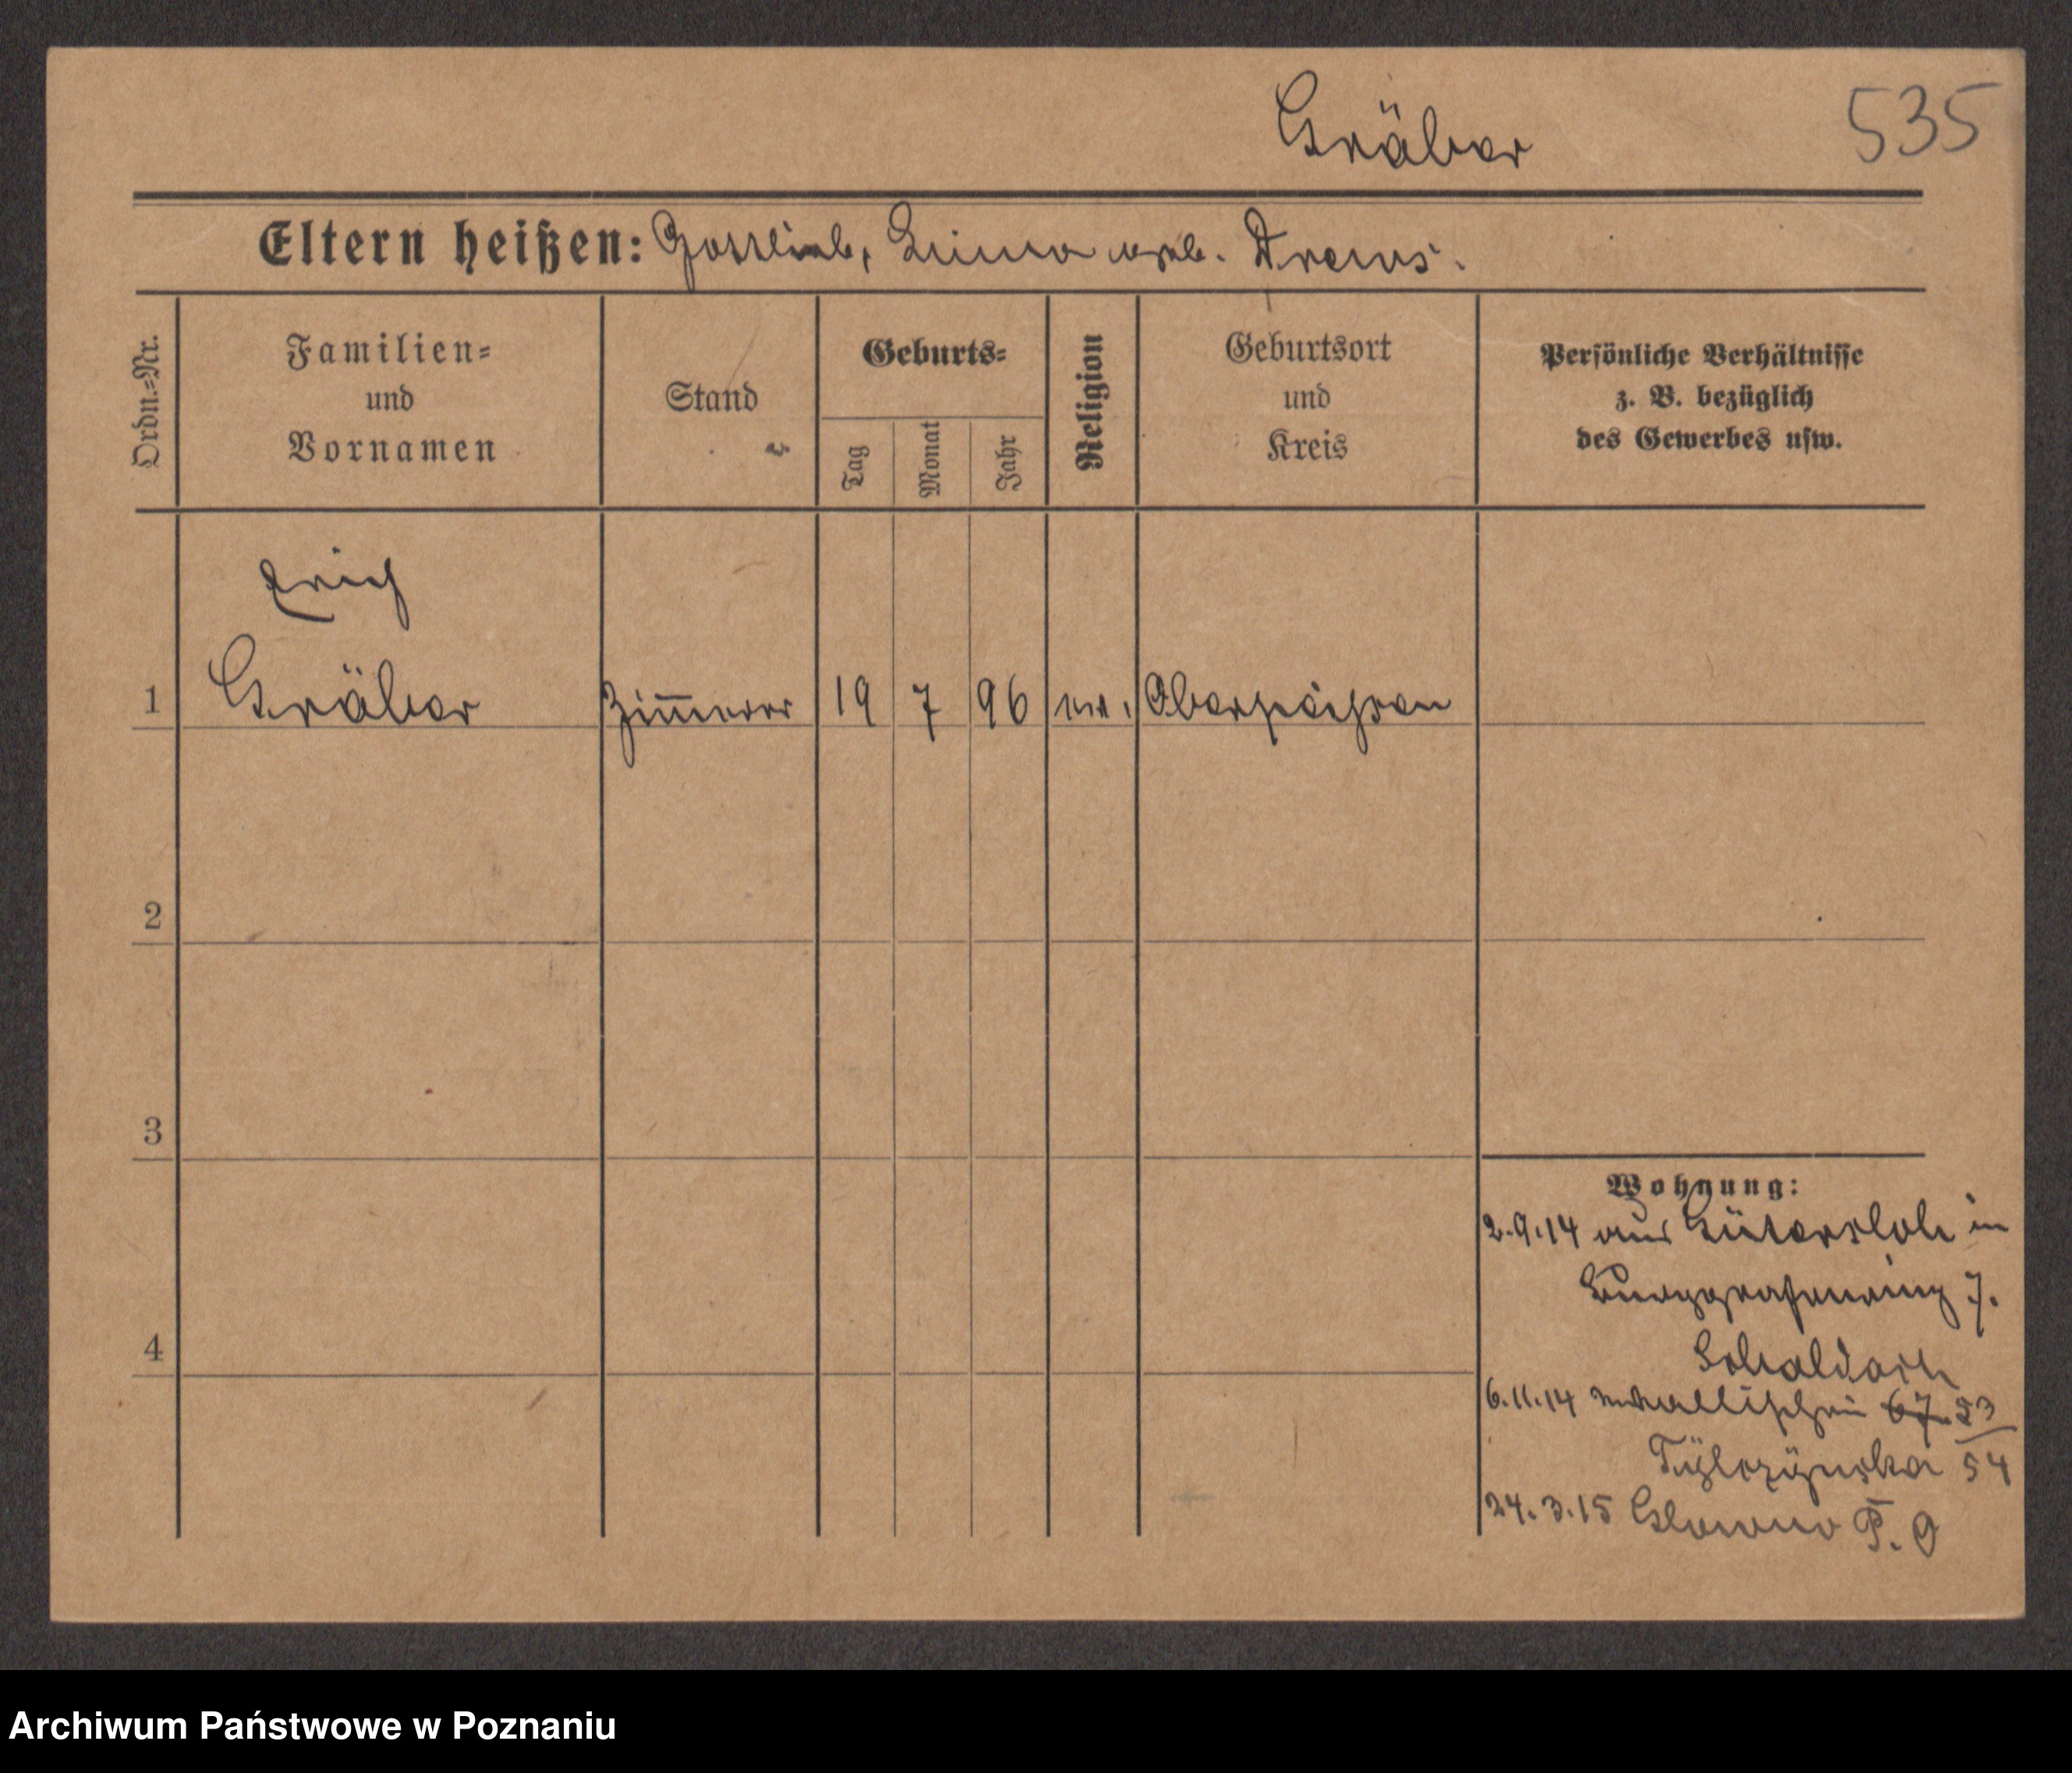 Gräber
535
Eltern heißen: Gottlieb, geb. Drews.
Ordn.=Nr.
Familien=
und
Vornamen
Stand
Geburts=
Tag
Monat
Jahr
Religion
Geburtsort
und
Kreis
Persönliche Verhältnisse
z. B. bezüglich
des Gewerbes usw.
Erich
1 Gräber Zimmerer 19 7 96 ev.
2
3
4
Wohnung:
2.9.14 aus Gütersloh in
Burggrafenring 7.
6.11.14 67. 53
54
24.3.15 Glowno P. 9
Archiwum Państwowe w Poznaniu